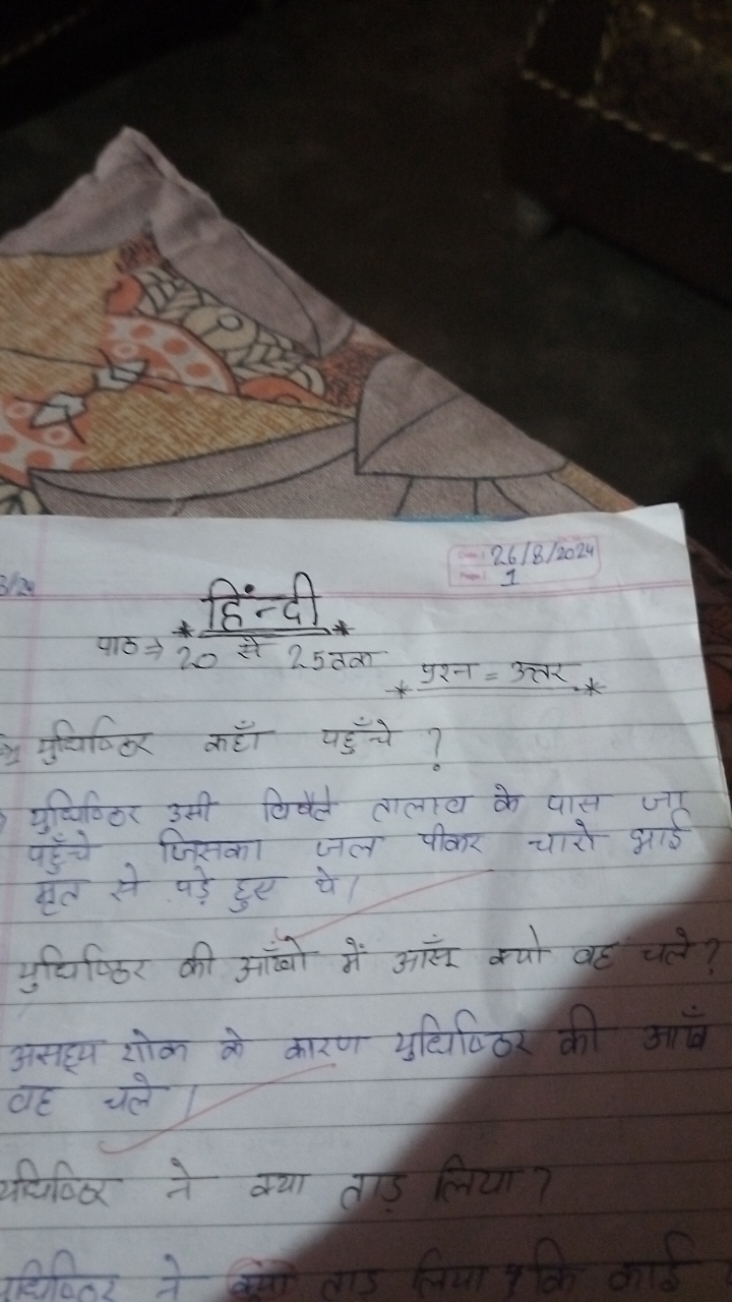 26/8/2024
1
हिन्दी
पाठ → 20 से 25 तक
प्रश्न = उत्तर
युधिष्ठिर कहाँ पहुँचे ?
युधिष्ठिर उसी विषैले तालाव के पास जा
पहुँचे जिसका जल पीकर चारो भाई
मृत से पड़े हुए थे।
युधिष्ठिर की आँखो में आँसू क्यो वह चले ?
असह्य शोक के कारण युधिष्ठिर की आँखे
वह चले ।
युधिष्ठिर ने क्या ताड़ लिया ?
युधिष्ठिर ने ताड़ लिया कि कोई